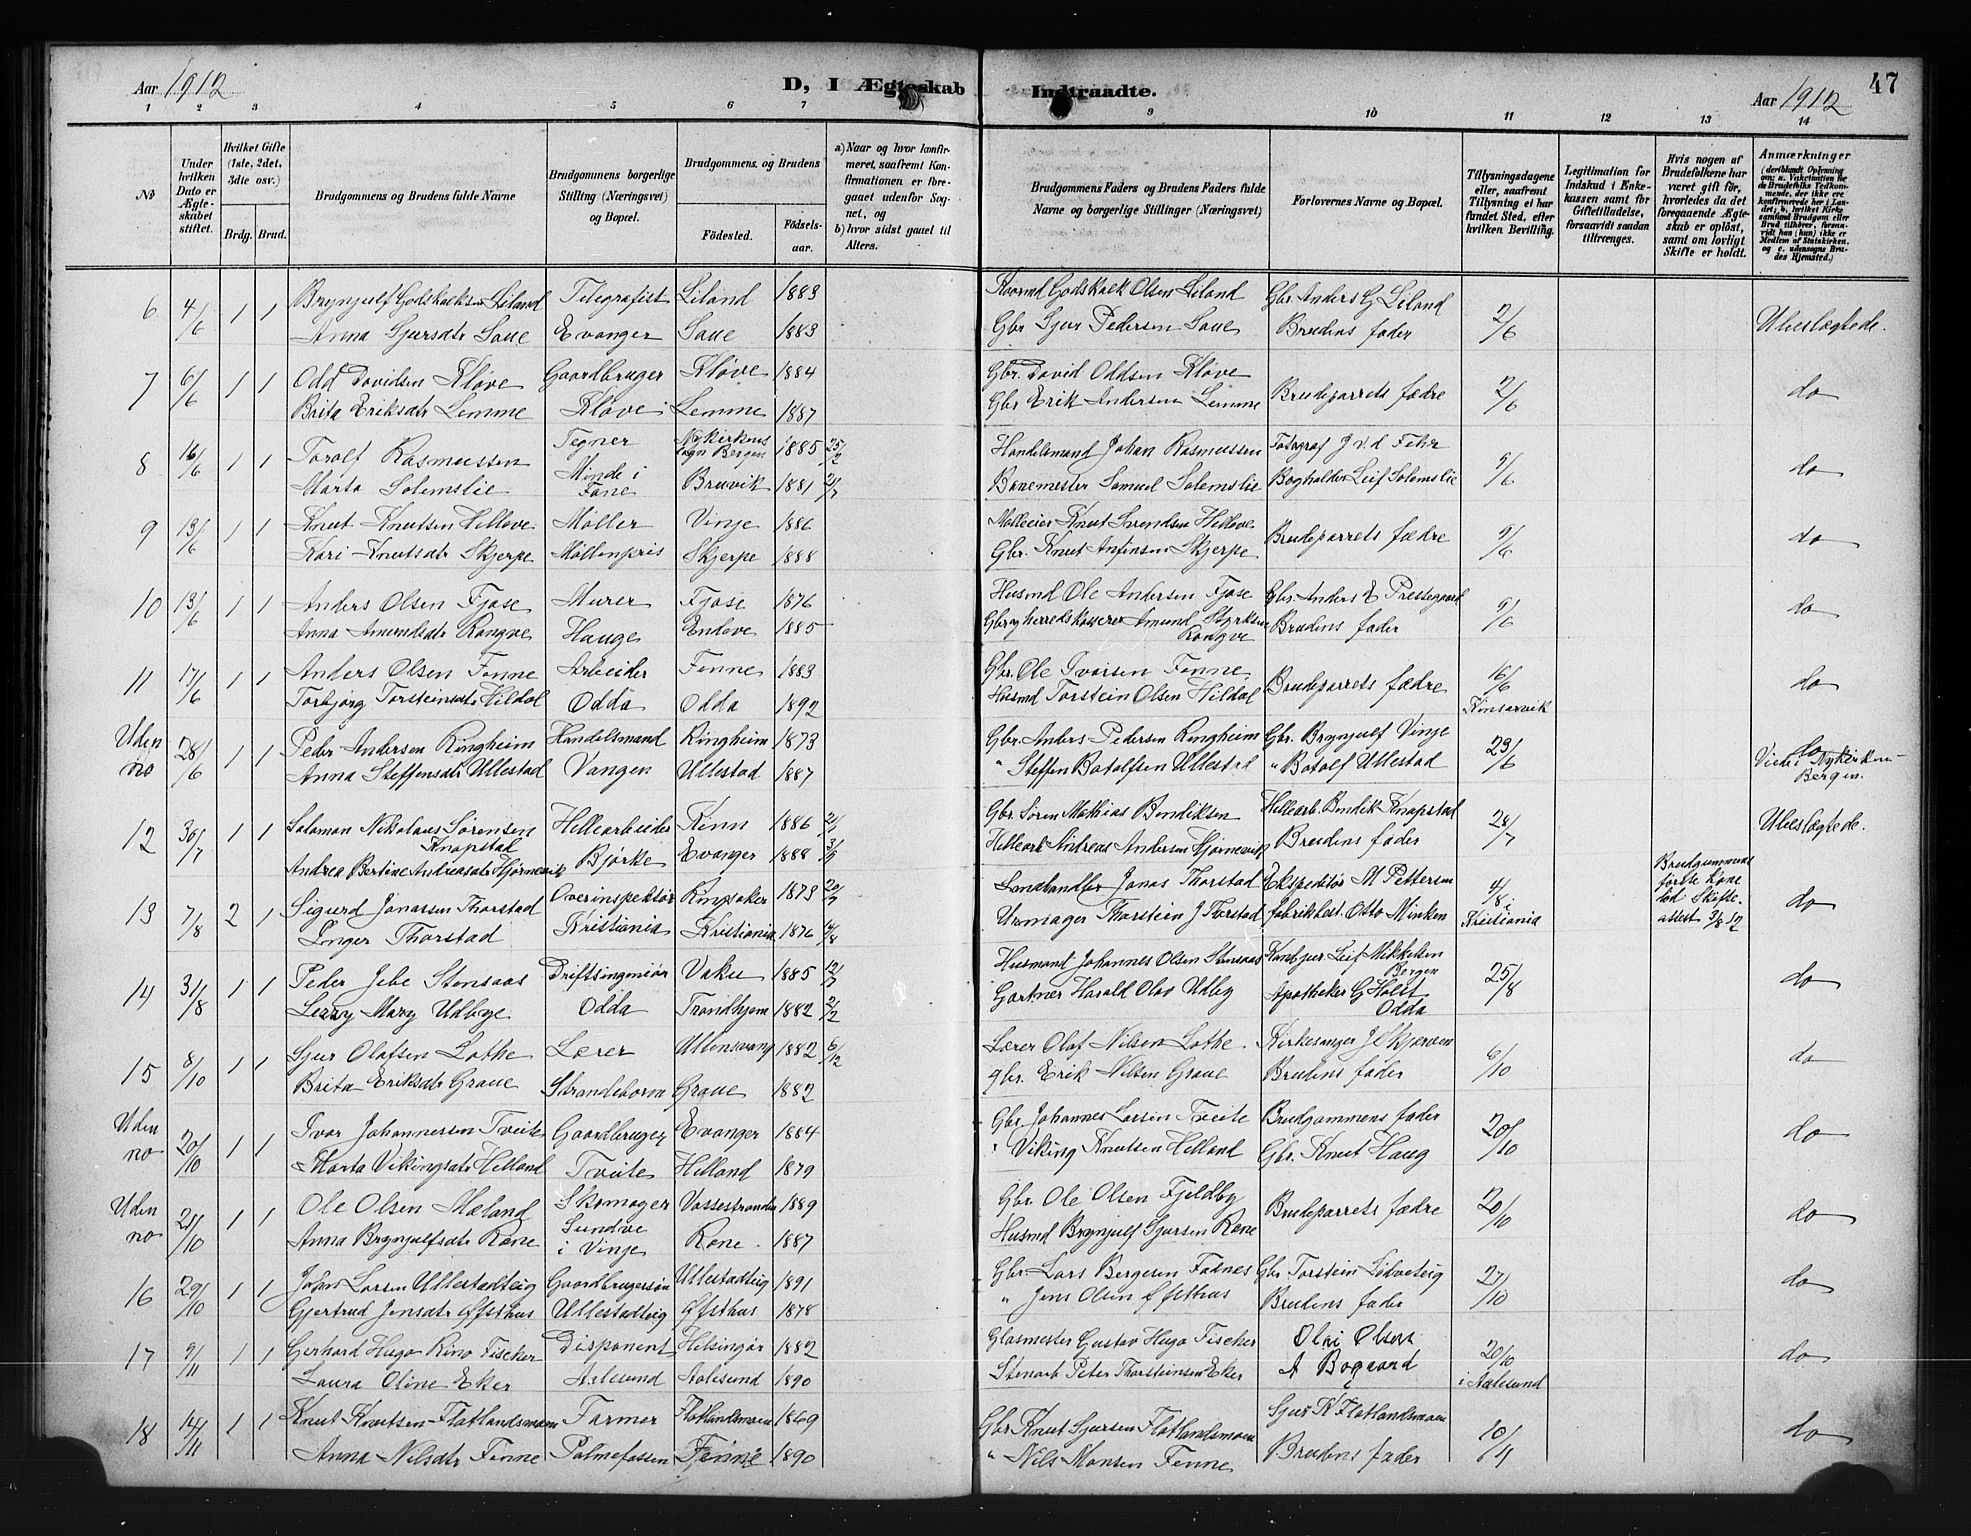 Aar 1912
D, I Ægteskab
Indtraadte.
Aar 1912
47
1 2 3 4 5 6 7 9 10 11 12 13 14
No
Under hvilken Dato er Ægteskabet stiftet.
Hvilket Gifte (1ste, 2det, 3die osv.)
Brdg. Brud.
Brudgommens og Brudens fulde Navne
Brudgommens borgerlige Stilling (Næringsvei) og Bopæl.
Brudgommens og Brudens
Fødested.
Fødselsaar.
a) Naar og hvor konfirmeret, saafremt Konfirmationen er foregaaet udenfor Sognet, og
b) hvor sidst gaaet til Alters.
Brudgommens Faders og Brudens Faders fulde Navne og borgerlige Stillinger (Næringsvei)
Forlovernes Navne og Bopæl.
Tillysningsdagene eller, saafremt Tillysning ei har fundet Sted, efter hvilken Bevilling.
Legitimation for Indskud i Enkekassen samt for Giftetilladelse, forsaavidt saadan tiltrænges.
Hvis nogen af Brudefolkene har været gift før, hvorledes da det foregaaende Ægteskab er opløst, samt om lovligt Skifte er holdt.
Anmærkninger
6 4/6 1 1 Brynjulf Godskalks. Liland Telegrafist Liland 1883 Godskalk Olsen Liland Gbr. Anders G Liland 2/6 Ubeslægtede.
Anna Sjursdtr Saue Evanger Saue 1883 Gbr Sjur Pedersen Saue Brudens fader
7 6/6 1 1 Odd Davidsen Kløve Gaardbruger Kløve 1884 Gbr. David Oddsen Kløve Brudeparrets fædre 2/6 do
Brita Eriksdtr Lemme Kløve Lemme 1887 Gbr Erik Andersen Lemme
8 16/6 1 1 Torolf Rasmussen Tegner Nykirkens sogn Bergen 1885 Handelsmand Johan Rasmussen Fotograf J v.d Fehr 9/6 do
Marta Solemslie Minde i Fane Bruvik 1881 Banemester Samuel Solemslie Bogholder Leif Solemslie
9 13/6 1 1 Knut Knutsen Helleve Møller Vinje 1886 Mølleeier Knut Helleve Brudeparrets fædre 9/6 do
Kari Knutsdtr Skjerpe Møllenpris Skjerpe 1888 Gbr. Knut Anfinsen Skjerpe
10 13/6 1 1 Anders Olsen Fjose Murer Fjose 1876 Husmd Ole Andersen Fjose Gbr. Anders E Prestegaard 9/6 do
Anna Amundsdtr Rongve Hauge Endeve 1885 Gbr og herredskasserer Amund Styrksen Rongve Brudens fader
11 17/6 1 1 Anders Olsen Fenne Arbeider Fenne 1883 Gbr. Ole Iversen Fenne Brudeparrets fædre 16/6 Kinsarvik do
Torbjørg Torsteinsdtr Hildal Odda Odda 1892 Husmd Torstein Olsen Hildal
Uden no 28/6 1 1 Peder Andersen Ringheim Handelsmand Ringheim 1873 Gbr. Anders Pedersen Ringheim Gbr. Brynjulf Vinje 23/6 do
Anna Steffensdtr Ullestad Vangen Ullestad 1887 " Steffen Botolfsen Ullestad " Botolf Ullestad Viet i Nykirken Bergen.
12 30/7 1 1 Salamon Nikolaus Sørensen Knapstad Hellearbeider Kinn 1886 Gbr. Søren Mathias Bendiksen Hellearb. Bendik Knapstad 28/7 Ubeslægtede.
Andrea Bertine Andreasdtr Hjørnevik Bjørke Evanger 1888 Hellearb Andreas Andersen Hjørnevik Brudens fader
13 7/8 2 1 Sigurd Jonassen Thorstad Overinspektør Ringsaker 1873 20/9 Landhandler Jonas Thorstad Ekspeditør M Pettersen 4/8 i Kristiania Brudgummens første kone død Skifteattest 3/8 12 do
Inger Thorstad Kristiania Kristiania 1876 Urmager Thorstein J Thorstad Fabrikbest. Otto Minken
14 31/8 1 1 Peder Jebe Stensaas Driftsingeniør 1885 Husmand Johannes Olsen Stensaas Leif Mikkelsen Bergen 25/8 do
Lezzy Mary Udbye Odda Trondhjem 1882 2/2 Gartner Harald Olav Udby Apotheker G Holst Odda
15 8/10 1 1 Sjur Olafsen Lothe Lærer Ullensvang 1882 6/12 Lærer Olaf Nilsen Lothe. Kirkesanger J. Skjerven 6/10 do
Brita Eriksdtr Graue Strandebarm Graue 1882 gbr. Erik Nilsen Graue Brudens fader
Uden no 20/10 1 1 Ivar Johannessen Tveite Gaardbruger Evanger 1884 Gbr. Johannes Larsen Tveite Brudgommens fader 20/10 do
Marta Vikingsdtr Helland Tveite Helland 1879 " Viking Knutsen Helland Gbr. Knut Haug
Uden no 21/10 1 1 Ole Olsen Mæland Skomager Vossestranden 1889 Gbr. Ole Olsen Fjeldby Brudeparrets fædre 20/10 do
Anna Brynjulfsdtr Røne Sundve i Vinje Røne 1887 Husmd Brynjulf Sjursen Røne
16 29/10 1 1 Johan Larsen Ullestadteig Gaardbrugersøn Ullestadteig 1891 Gbr. Lars Bergesen Fadnes Gbr Torstein Lidveteig 27/10 do
Gjertrud Jensdtr Øfsthus Ullestadteig Øfsthus 1878 " Jens Olsen Øfsthus Brudens fader
17 9/11 1 1 Gerhard Hugo Rino Fischer Disponent Helsingør 1882 Glasmester Gustav Hugo Fischer Olai Olsen 20/10 i Aalesund do
Laura Oline Eker Aalesund Aalesund 1890 Stenarb Peter Thorsteinsen Eker A Bogaard
18 14/11 1 1 Knut Knutsen Flatlandsmoen Farmer Flatlandsmoen 1869 Gbr. Knut Sjursen Flatlandsmoen Sjur K Flatlandsmoen 10/11 do
Anna Nilsdtr Fenne Palmefossen Fenne 1890 " Nils Monsen Fenne Brudens fader